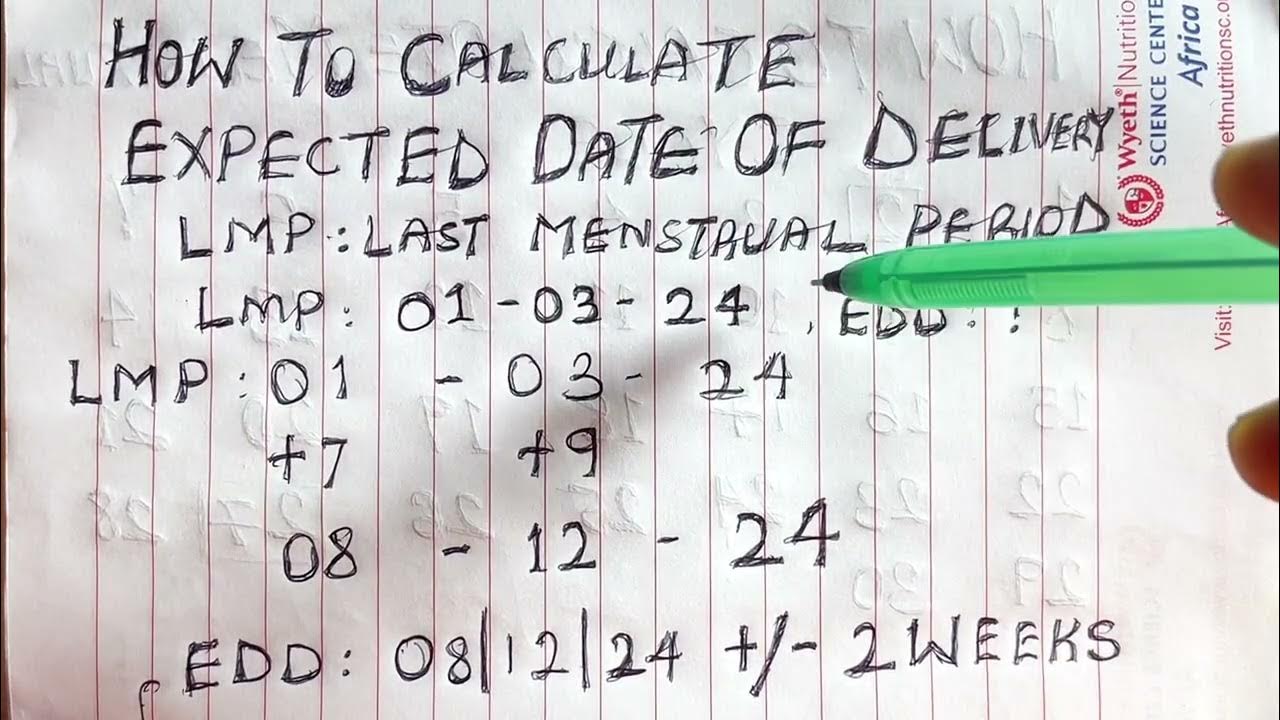 HOW TO CALCULATE
EXPECTED DATE OF DELIVERY
LMP: LAST MENSTRUAL PERIOD
LMP: 01 - 03 - 24 , EDD: ?
LMP: 01 - 03 - 24
+7 +9
08 - 12 - 24
EDD: 08|12|24 +/- 2 WEEKS
Wyeth® Nutrition
SCIENCE CENTE
Africa
Visit:
yethnutritionsc.o